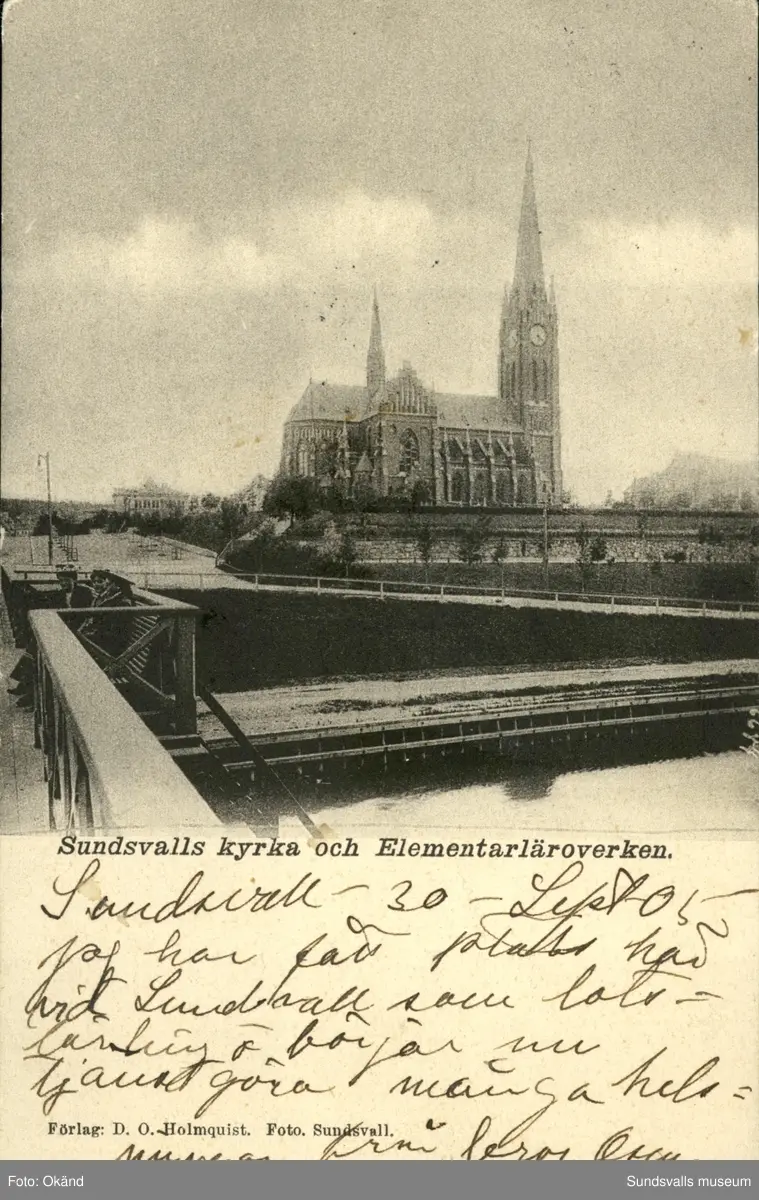 4699
Sundsvalls kyrka och Elementarläroverken.
Sundsvall - 30 - Sept 05 -
jag har fått plats här
vid Sundsvall som lots-
lärling o börjar nu
tjanstgöra många hels=
Förlag: D. O. Holmquist. Foto. Sundsvall.
ningar från
Foto: Okänd
Sundsvalls museum